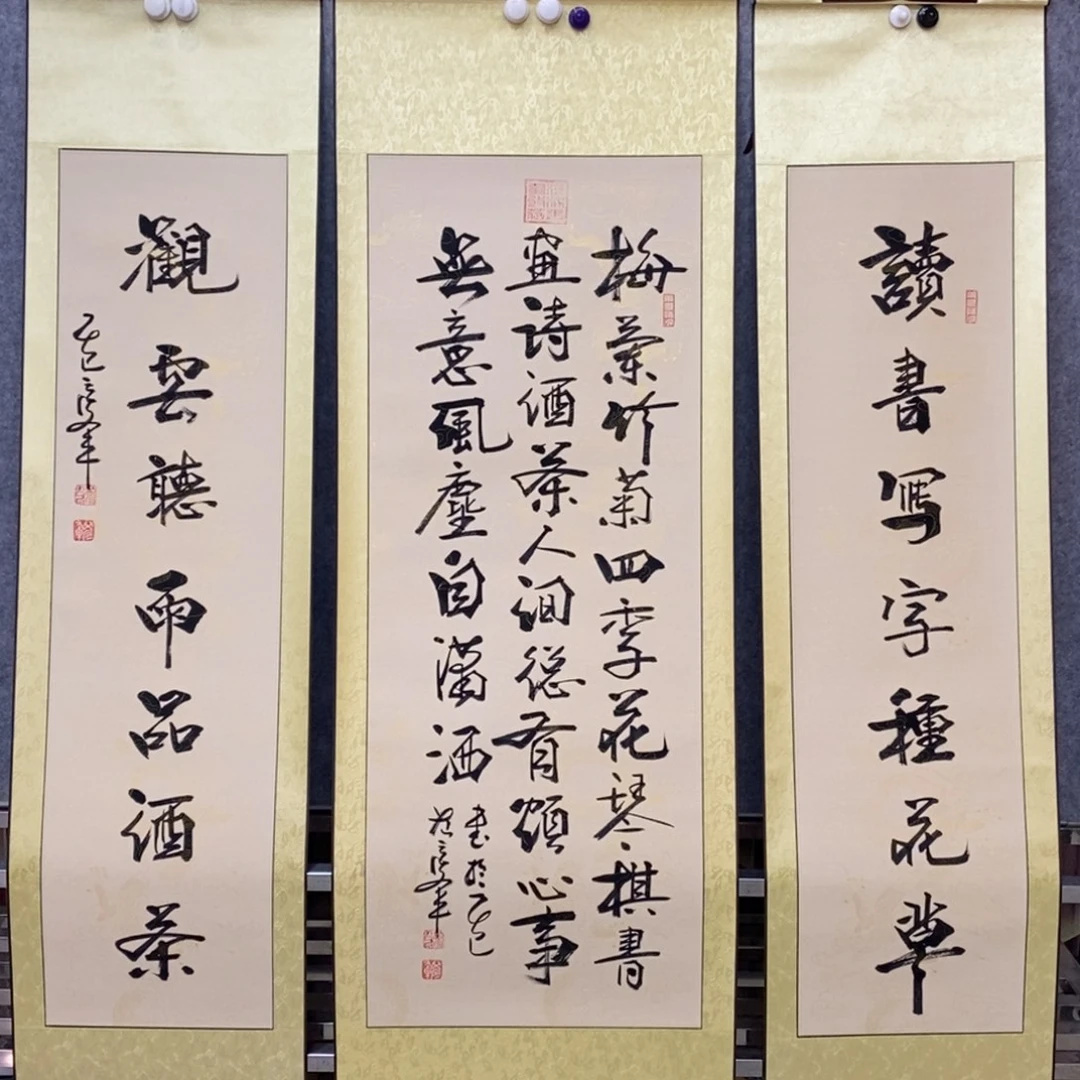 讀書寫字種花草
梅蘭竹菊四季花琴棋書
畫詩酒茶人间總有煩心事
無意風塵自瀟洒
書於乙巳
觀雲聽雨品酒茶
乙巳